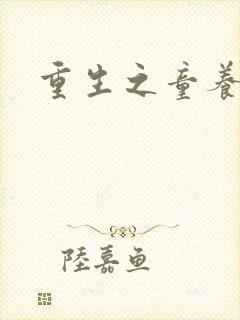 重生之童養
陸嘉鱼